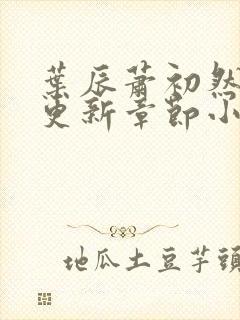 葉辰蕭初然
更新章節小
地瓜土豆芋頭